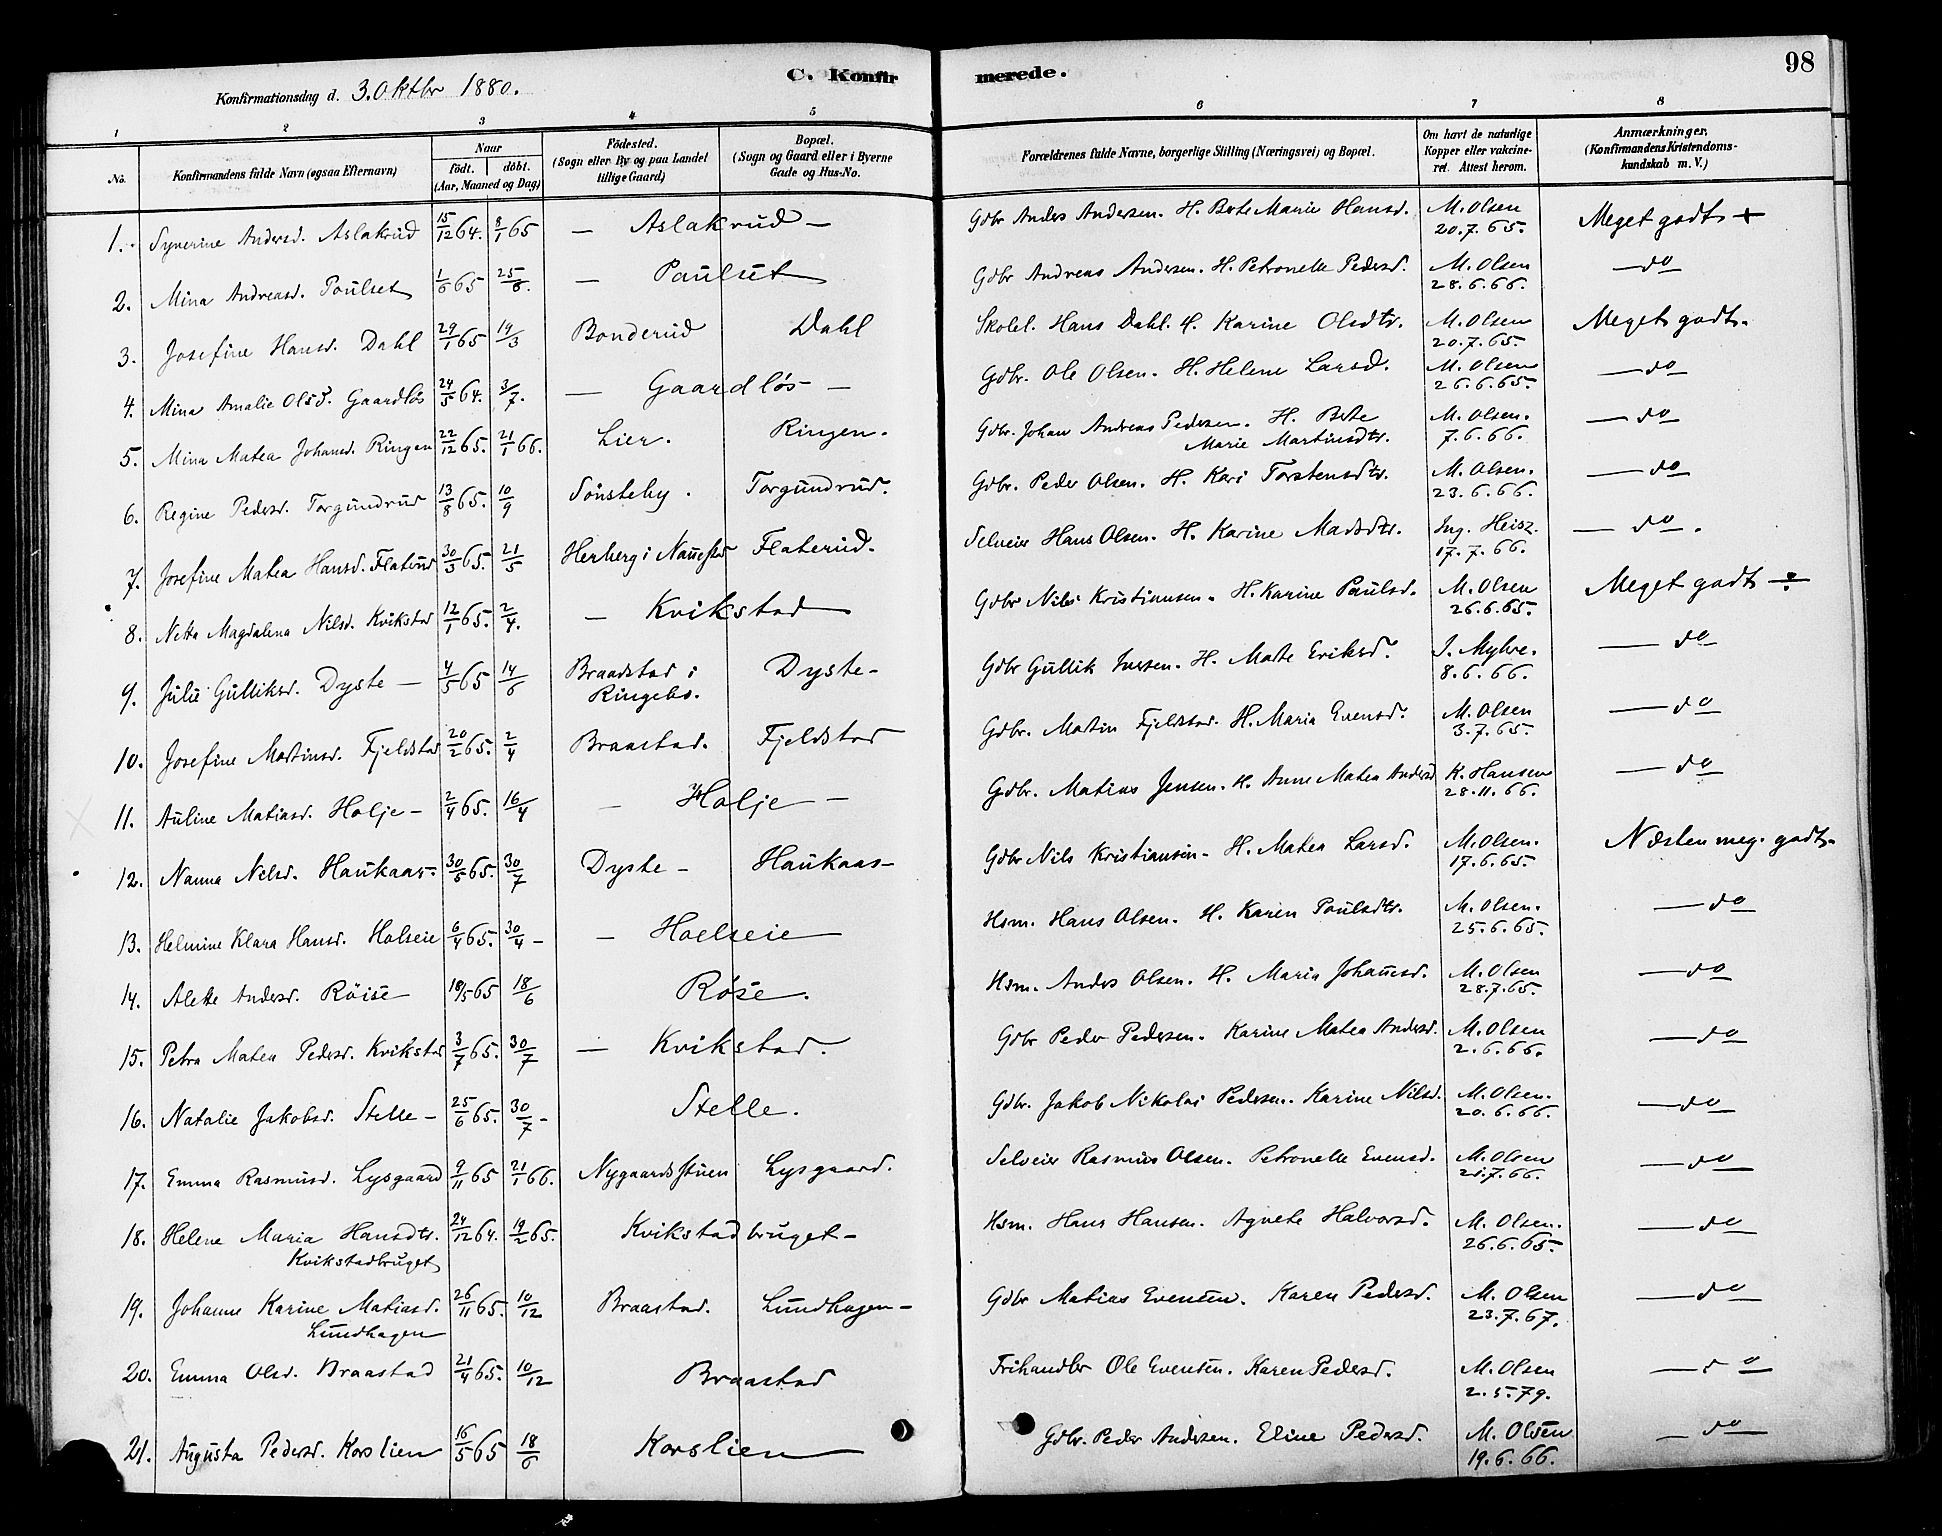 98
C. Konfirmerede.
Konfirmationsdag d. 3. Oktbr 1880.
1 2 3 4 5 6 7 8
No. Konfirmandens fulde Navn (ogsaa Efternavn) Naar født. døbt. (Aar, Maaned og Dag) Fødested. (Sogn eller By og paa Landet tillige Gaard) Bopæl. (Sogn og Gaard eller i Byerne Gade og Hus-No. Forældrenes fulde Navne, borgerlige Stilling (Næringsvei) og Bopæl. Om havt de naturlige Kopper eller vakcineret. Attest herom. Anmærkninger. (Konfirmandens Kristendomskundskab m. V.)
1. Synerine Andersd. Aslakrud 15/12 64. 8/1 65 — Aslakrud — Gdbr Anders Andersen. H. Berte Marie Hansd. M. Olsen 20.7.65. Meget godt +
2. Mina Andreasd. Poulset 1/6 65 25/8. — Paulset Gdbr Andreas Andersen. H. Petronelle Pedersd. M. Olsen 28.6.66. — do
3. Josefine Hansd. Dahl 29/1 65 19/3 Bonderud Dahl Skolel. Hans Dahl. H. Karine Olsdtr. M. Olsen 20.7.65. Meget godt.
4. Mina Amalie Olsd. Gaardløs 24/5 64. 3/7. — Gaardløs — Gdbr. Ole Olsen. H. Helene Larsd. M. Olsen 26.6.65. — do
5. Mina Matea Johansd. Ringen 22/12 65. 21/1 66. Lier. Ringen. Gdbr. Johan Andreas Pedersen. H. Berte Marie Martinsdtr. M. Olsen. 7.6.66. — do
6. Regine Pedersd. Torgundrud 13/8 65. 10/9 Sønsteby. Torgundrud. Gdbr. Peder Olsen. H. Kari Torstensdtr. M. Olsen. 23.6.66. — do
7. Josefine Matea Hansd. Flaterud 30/3 65. 21/5 Herberg i Flaterud. Selveier Hans Olsen. H. Karine Madsdtr. Ing. Heisz. 17.7.66. — do.
8. Netta Magdalena Nilsd. Kvikstad 12/1 65. 2/4. — Kvikstad Gdbr Nils Kristiansen. H. Karine Paulsd. M. Olsen 26.6.65. Meget godt ÷
9. Julie Gulliksd. Dyste — 4/5 65 14/6 Braadstad i Ringebo. Dyste — Gdbr Gullik Iversen. H. Mate Eriksd. J. Myhre. 8.6.66. — do
10. Josefine Martinsd. Fjeldstad 20/2 65. 2/4 Braastad. Fjeldstad Gdbr. Matin Fjeldstad. H. Maria Evensd. M. Olsen 3.7.65. — do
11. Auline Matiasd. Holje — 2/4 65. 16/4 — Holje — Gdbr. Matias Jensen. H. Anne Matea Andersd K. Hansen 28.11.66. — do
12. Nanna Nilsd. Haukaas — 30/5 65. 30/7 Dyste — Haukaas — Gdbr Nils Kristiansen. H. Matea Larsd. M. Olsen. 17.6.65. Næsten meg. godt.
13. Helmine Klara Hansd. Holseie 6/4 65. 30/4 — — Hoelseie Hsm. Hans Olsen. H. Karen Poulsdtr. M. Olsen. 25.6.65. — do
14. Alette Andersd. Röise 18/5 65 18/6 Røse. Hsm. Anders Olsen. H. Maria Johannesd. M. Olsen 28.7.65. — do
15. Petra Matea Pedersd. Kvikstad 3/7 65. 30/7 — Kvikstad. Gdbr Peder Pedersen. Karine Matea Andersd. M. Olsen 2.6.66. — do
16. Natalie Jakobsd. Stelle — 25/6 65. 30/7 — Stelle. Gdbr. Jakob Nikolai Pedersen. Karine Nilsd. M. Olsen. 20.6.66. — do
17. Emma Rasmusd. Lysgaard 9/11 65 21/1 66. Nygaardsstuen Lysgaard. Selveier Rasmus Olsen. Petronelle Evensd. M. Olsen 21.7.66. — do
18. Helene Maria Hansdtr. Kvikstadbruget 24/12 64. 19/2 65. Kvikstadbruget — Hsm. Hans Hansen. Agnete Halvorsd. M. Olsen. 26.6.65. — do
19. Johanne Karine Matiasd. Lundhagen 26/11 65. 10/12 Braastad. Lundhagen — Gdbr Matias Evensen. Karen Pedersd. M. Olsen 23.7.67. — do
20. Emma Olsd. Braastad 21/4 65. 10/12 Braastad Frihandler Ole Evensen. Karen Pedersd. M. Olsen 2.5.79. — do
21. Augusta Pedersd. Korslien 16/5 65 18/6 Korslien Gdbr. Peder Andersen. Eline Pedersd. M. Olsen 19.6.66. — do